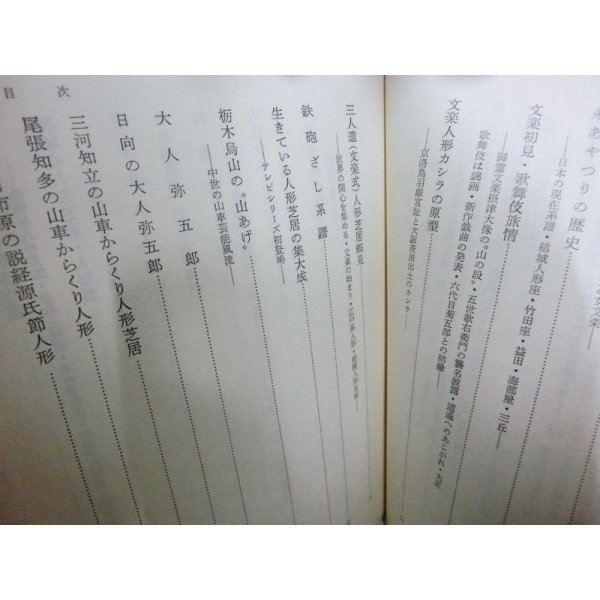 糸あやつりの歴史
―日本の現在系譜・結城人形座・竹田座・益田・海部屋・三丘―
文楽初見・歌舞伎旅情
―御霊文楽摂津大掾の"山の段"・五世歌右衛門の襲名披露・道頓へのあこがれ・大正
歌舞伎は錦画・新作戯曲の発表・六代目菊五郎との結縁―
文楽人形カシラの原型
―京洛鳥羽離宮趾と大阪茨田出土のカシラ―
三人遣(文楽式)人形芝居細見
―世界の関心を集める・文楽の始まり・江戸系人形・
鉄砲ざし系譜
生きている人形芝居の集大成
―テレビシリーズ初登場―
栃木烏山の"山あげ"
―中世の山車芸能風流―
大人弥五郎
日向の大人弥五郎
三河知立の山車からくり人形芝居
尾張知多の山車からくり人形
市原の説経源氏節人形
目次